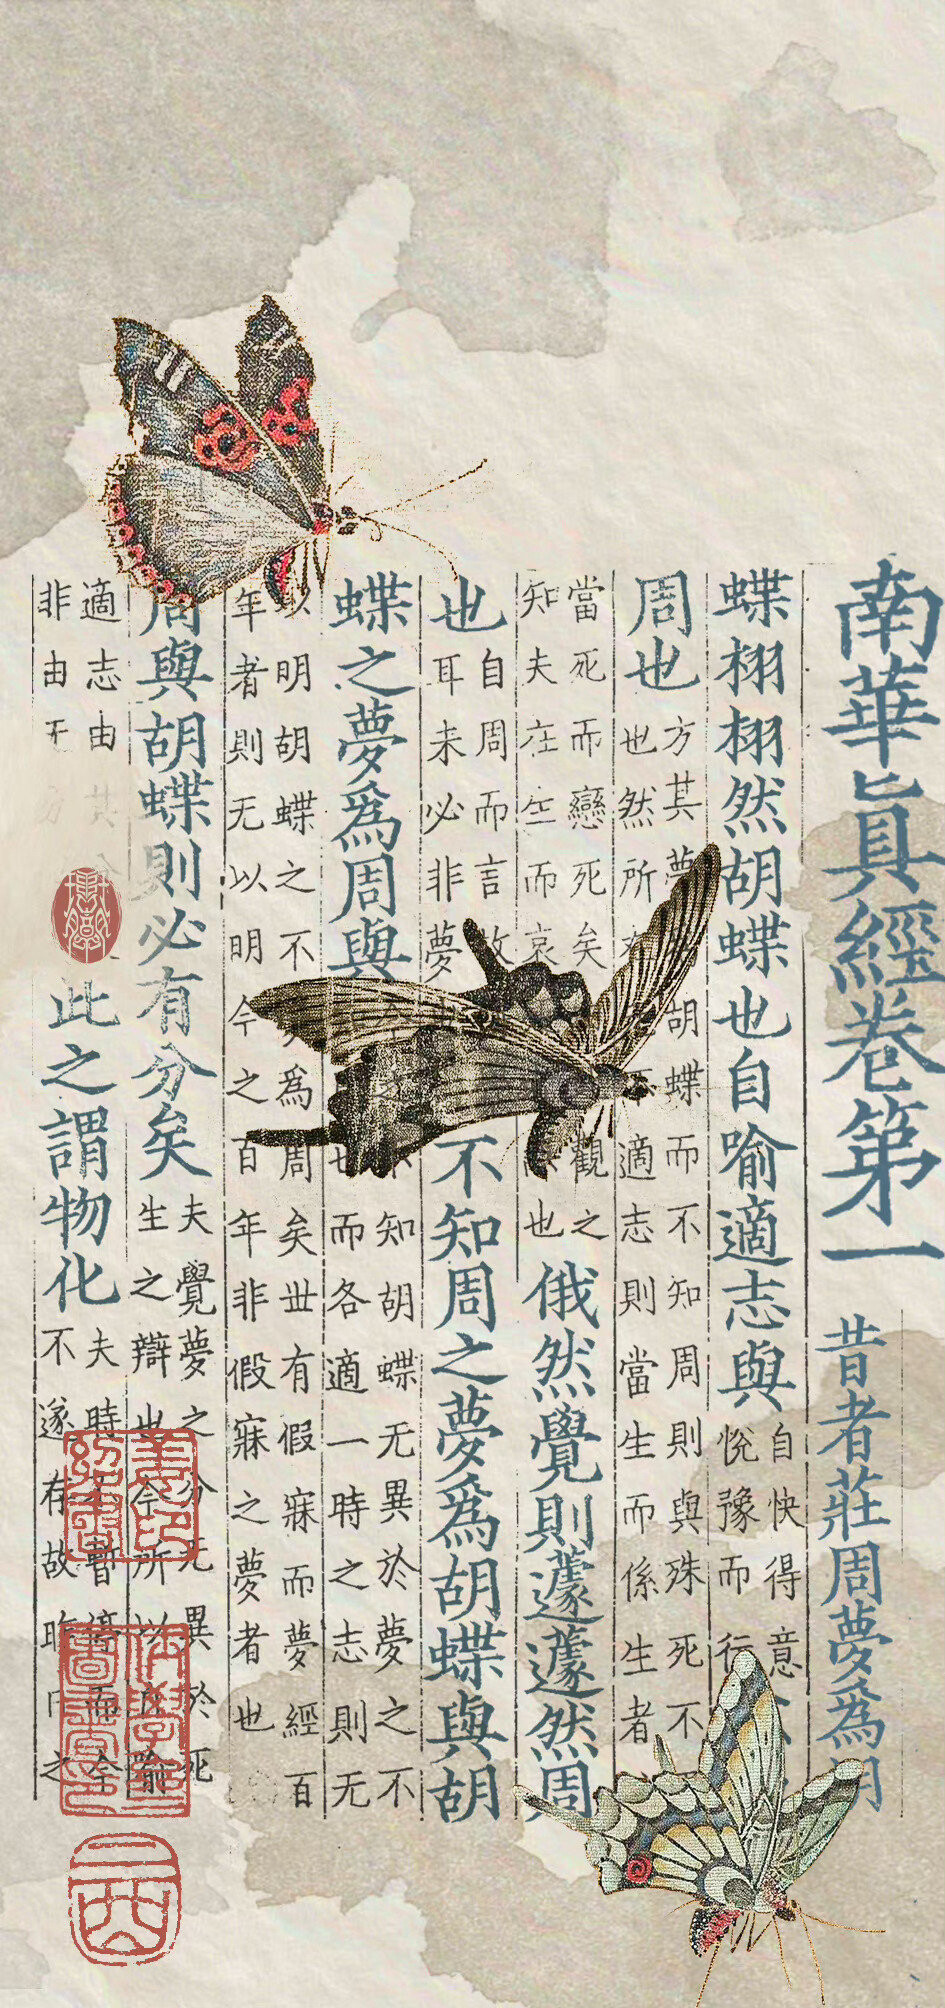 南華眞經卷第一
昔者莊周夢爲胡
蝶栩栩然胡蝶也自喻適志與
自快得意
悅豫而行
周也
方其夢胡蝶而不知周則與殊死不
也然所適志則當生而係生者
當死而戀死矣觀之
知夫在生而哀也
俄然覺則蘧蘧然周
也
自周而言故
耳未必非夢
不知周之夢爲胡蝶與胡
蝶之夢爲周與
知胡蝶无異於夢之不
也而各適一時之志則无
以明胡蝶之不夢爲周矣世有假寐而夢經百
年者則无以明今之百年非假寐之夢者也
周與胡蝶則必有分矣
夫覺夢之分无異於死
生之辯也今所以自喻
適志由其
非由无
此之謂物化
夫時不暫停而今
不遂存故昨日之
二酉